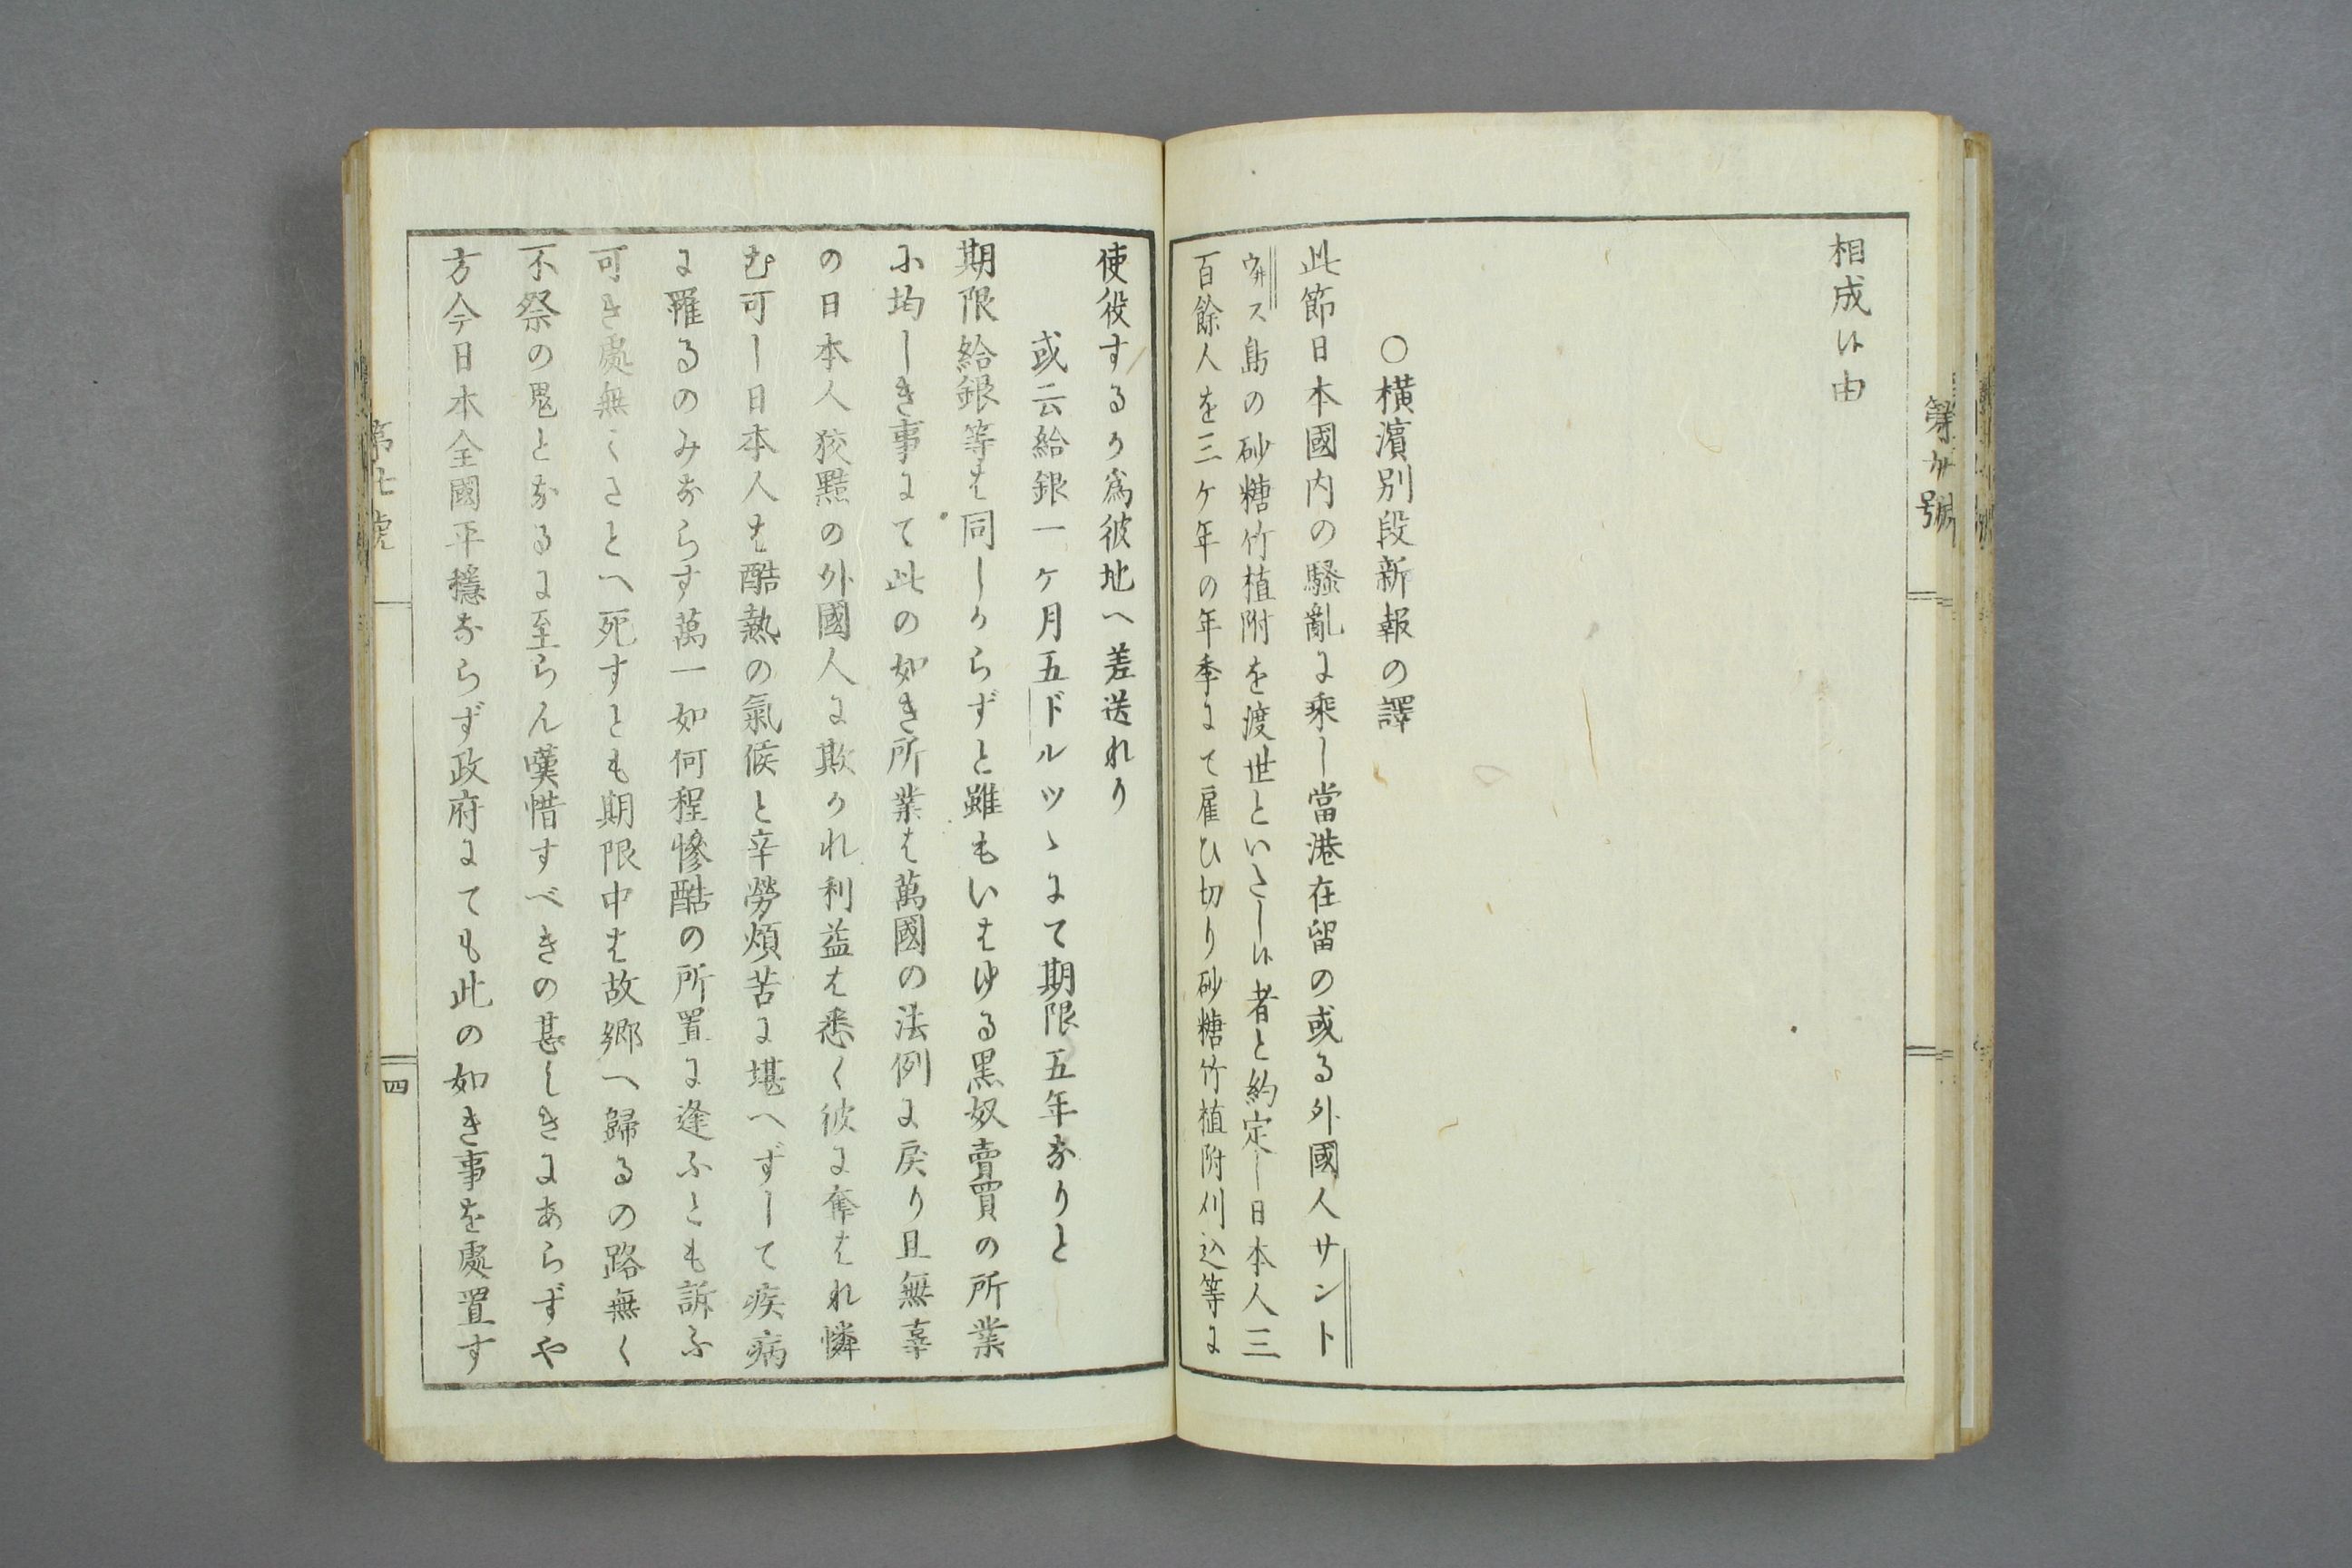 相成候由
○横濱別段新報の譯
此節日本國内の騷亂に乘し當港在留の或る外國人サント
ウ井ス島の砂糖竹植附を渡世といたし候者と約定し日本人三
百餘人を三ケ年の年季にて雇ひ切り砂糖竹植附刈込等に
使役するか爲彼地へ差送れり
或云給銀一ケ月五ドルツヽにて期限五年なりと
期限給銀等は同しからずと雖もいはゆる黒奴賣買の所業
に均しき事にて此の如き所業は萬國の法例に戻り且無辜
の日本人狡黠の外國人に欺かれ利益は悉く彼に奪はれ憐
む可し日本人は酷熱の氣候と辛勞煩苦に堪へずして疾病
に羅るのみならす萬一如何程慘酷の所置に逢ふとも訴ふ
可き處無くたとへ死すとも期限中は故郷へ歸るの路無く
不祭の鬼となるに至らん嘆惜すべきの甚しきにあらずや
方今日本全國平穩ならず政府にても此の如き事を處置す
第七號
四